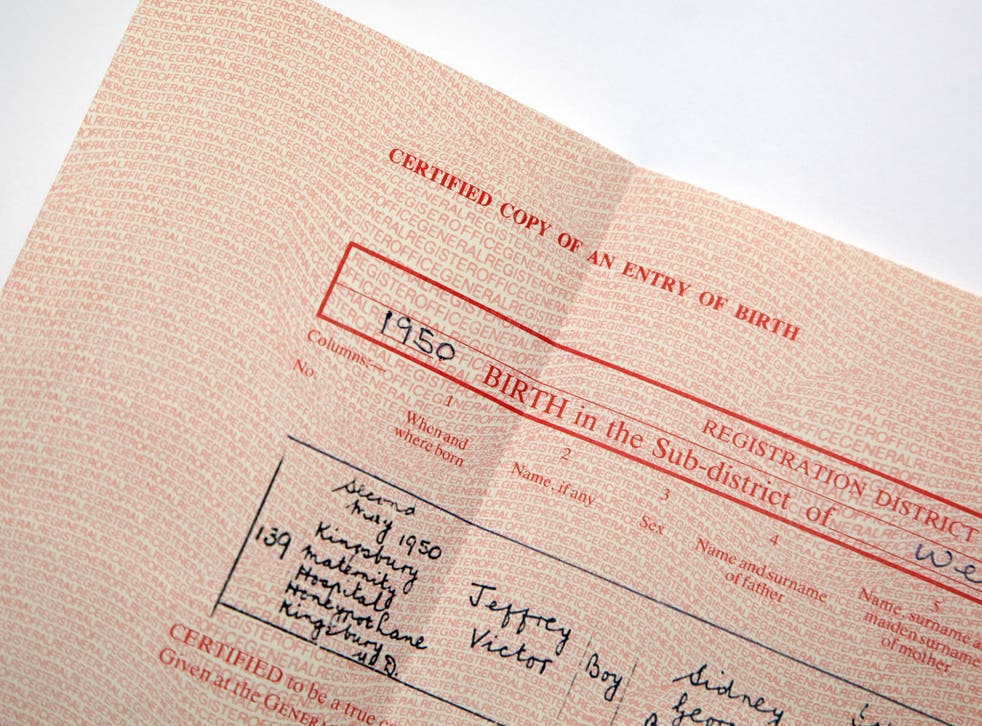 CERTIFIED COPY OF AN ENTRY OF BIRTH
REGISTRATION DISTRICT
1950 BIRTH in the Sub-district of We
Columns:—
1
2
3
4
5
No.
When and
where born
Name, if any
Sex
Name and surname
of father
Name, surname a
maiden surname
of mother
139
Second
May 1950
Kingsbury
maternity
Hospital
Honeypot Lane
Kingsbury
U.D.
Jeffrey
Victor
Boy
Sidney
Geor
CERTIFIED to be a true co
Given at the GENERA